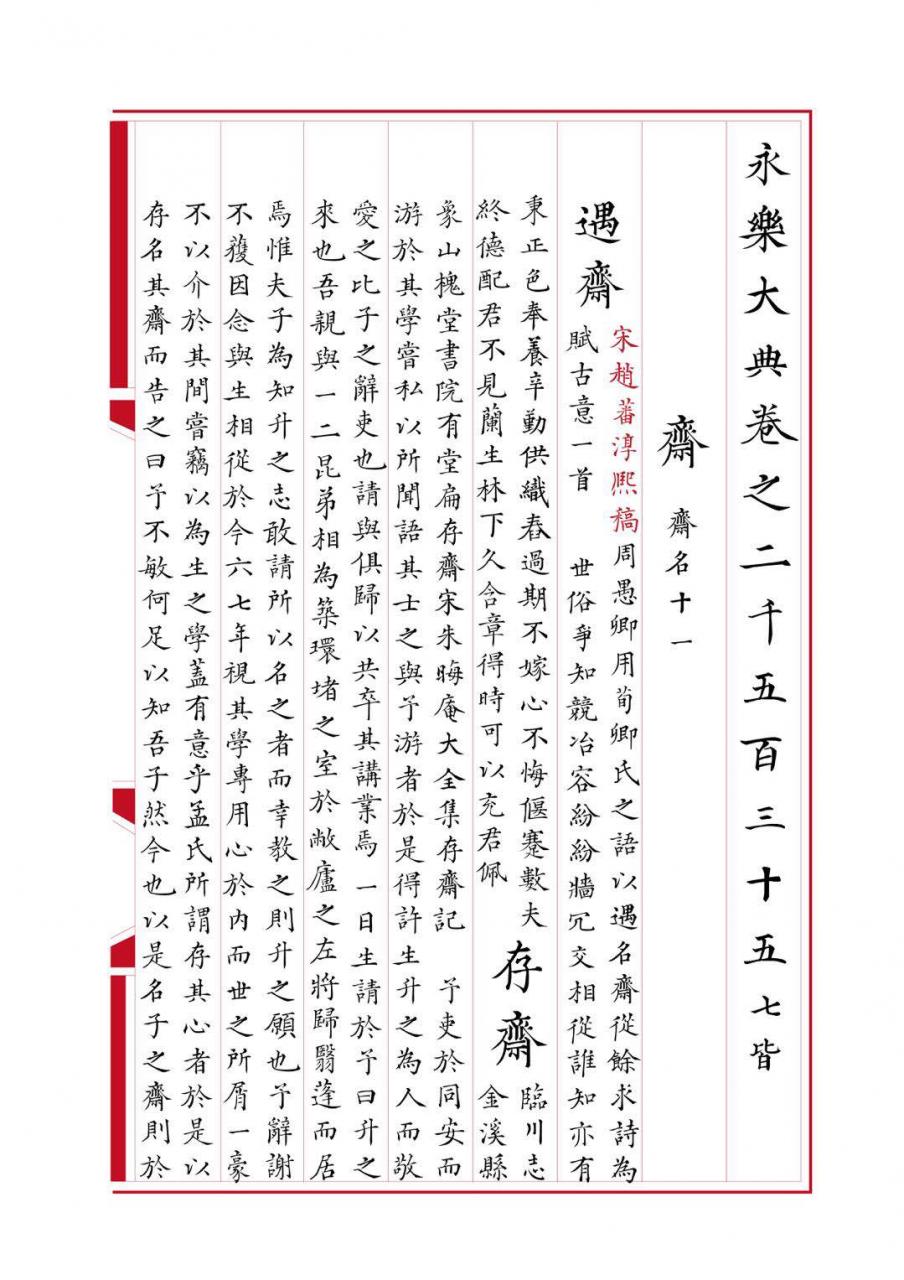 永樂大典卷之二千五百三十五 七皆
齋 齋名十一
遇齋
宋趙蕃淳熙稿周愚卿用荀卿氏之語以遇名齋從餘求詩為
賦古意一首 世俗爭知競冶容紛紛牆冗交相從誰知亦有
秉正色奉養辛勤供織舂過期不嫁心不悔偃蹇數夫
終德配君不見蘭生林下久含章得時可以充君佩
存齋
臨川志
金溪縣
象山槐堂書院有堂扁存齋宋朱晦庵大全集存齋記 予吏於同安而
游於其學嘗私以所聞語其士之與予游者於是得許生升之為人而敬
愛之比予之辭吏也請與俱歸以共卒其講業焉一日生請於予曰升之
來也吾親與一二昆弟相為築環堵之室於敝廬之左將歸翳蓬而居
焉惟夫子為知升之志敢請所以名之者而幸教之則升之願也予辭謝
不獲因念與生相從於今六七年視其學專用心於內而世之所屑一豪
不以介於其間嘗竊以為生之學蓋有意乎孟氏所謂存其心者於是以
存名其齋而告之曰予不敏何足以知吾子然今也以是名子之齋則於